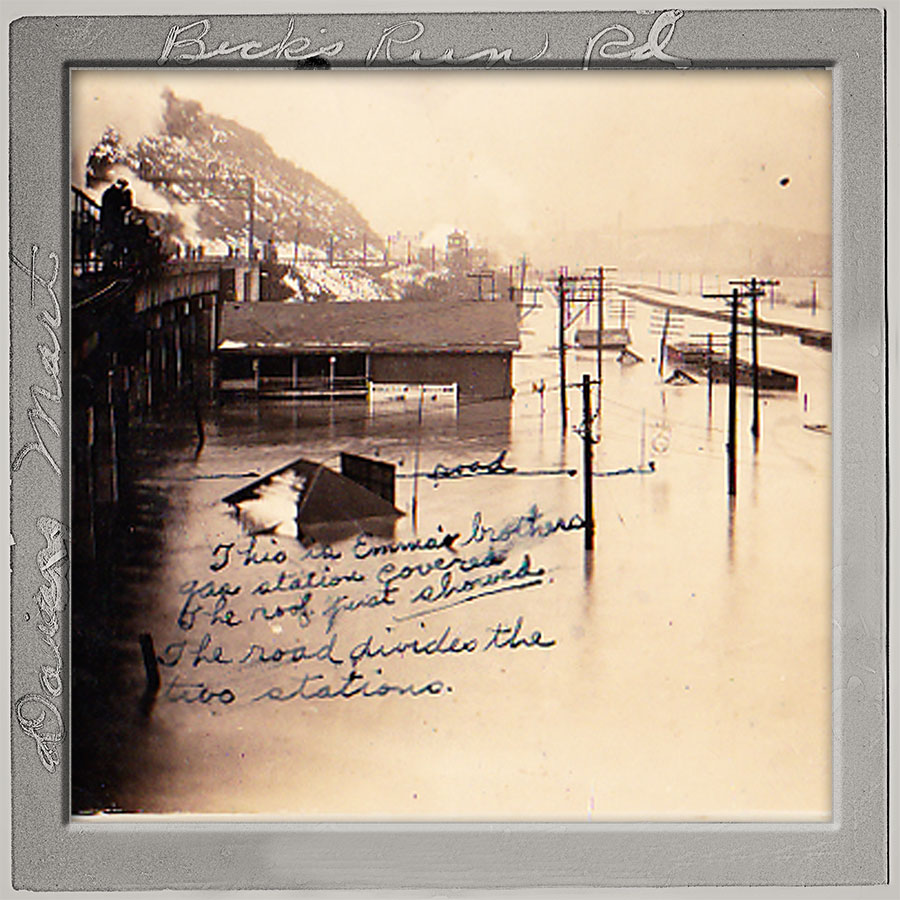 Beck's Run Rd
Davis Mart
road
This is Emma's brothers
gas station covered
the roof just showed.
The road divides the
two stations.